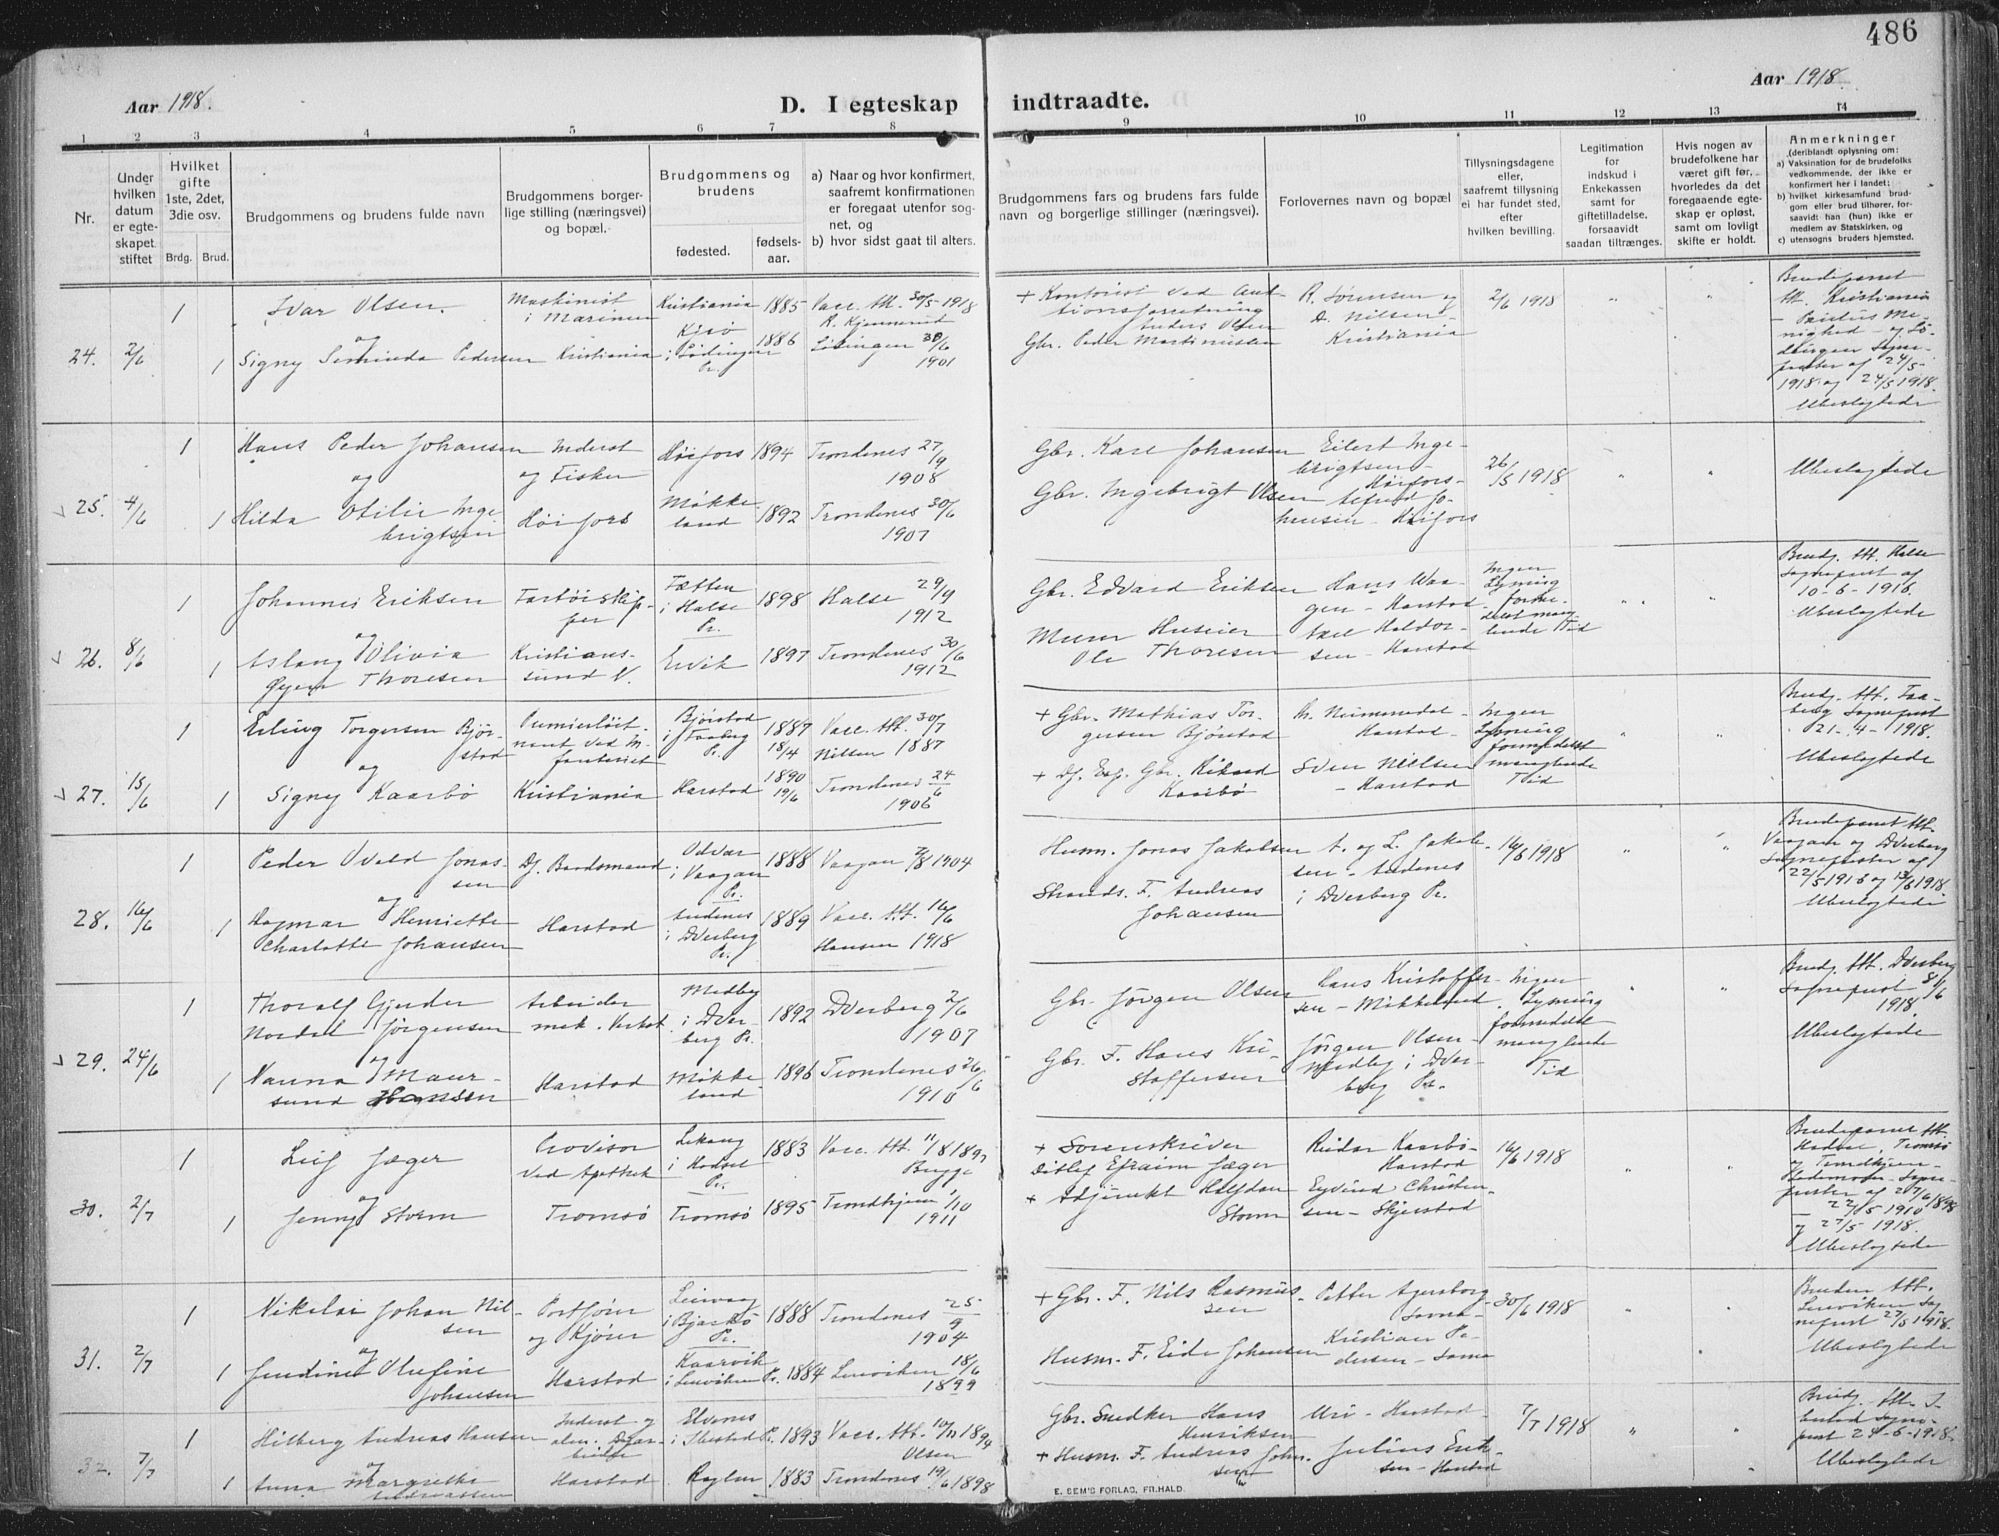 486
Aar 1918.
Aar 1918.
D. I egteskap indtraadte.
1 2 3 4 5 6 7 8 9 10 11 12 13 14
Nr.
Under hvilken datum er egteskapet stiftet
Hvilket gifte 1ste, 2det, 3die osv.
Brdg. Brud.
Brudgommens og brudens fulde navn
Brudgommens borgerlige stilling (næringsvei) og bopæl.
Brudgommens og brudens
fødested. fødselsaar.
a) Naar og hvor konfirmert, saafremt konfirmationen er foregaat utenfor sognet, og
b) hvor sidst gaat til alters.
Brudgommens fars og brudens fars fulde navn og borgerlige stillinger (næringsvei).
Forlovernes navn og bopæl
Tillysningsdagene eller, saafremt tillysning ei har fundet sted, efter hvilken bevilling.
Legitimation for indskud i Enkekassen samt for giftetilladelse, forsaavidt saadan tiltrænges.
Hvis nogen av brudefolkene har været gift før, hvorledes da det foregaaende egteskap er opløst, samt om lovligt skifte er holdt.
Anmerkninger
(deriblandt oplysning om:
a) Vaksination for de brudefolks vedkommende, der ikke er konfirmert her i landet;
b) hvilket kirkesamfund brudgom eller brud tilhører, forsaavidt han (hun) ikke er medlem av Statskirken, og
c) utensogns bruders hjemsted.
24. 2/6 1 Ivar Olsen. Maskinist i Marinen Kristiania 1885 Vacc. Att. 30/5 1918
+ Kontorist ved Auktionsforretning Anders Olsen R. Sørensen og D. Nilsen Kristiania 2/6 1918 " "
og
1 Signy Seminda Pedersen Kristiania i Lødingen Pr. 1886 Lødingen 30/6 1901
Gbr. Peder Martinussen
Brudeparret Att. Kristiania - Paulus Menighed - og Lødingen Sognepræster af 24/5 1918 og 24/5 1918. Ubeslægtede
25. 4/6 1 Hans Peder Johansen Inderst og Fisker Høifors 1894 Trondenes 27/9 1908
Gbr. Karl Johansen Eilert Ingebrigtsen - Høifors - 26/5 1918 " " Ubeslægtede
og
1 Hilda Otilie Ingebrigtsen Høifors Møkkeland 1892 Trondenes 30/6 1907
Gbr. Ingebrigt Olsen Alfred Johansen - Høifors
26. 8/6 1 Johannes Eriksen Fartøiskipper Fætten i Halse Pr. 1898 Halse 29/9 1912
Gbr. Edvard Eriksen Hans Waagen - Harstad Ingen Lysning formedelst manglende Tid " "
og
1 Aslaug Olivia Øyen Thoresen Kristianssund N. Ervik 1897 Trondenes 30/6 1912
Murer Huseier Ole Thoresen Axel Haldorsen - Harstad
Brudg. Att. Halse Sognepræst af 10-6-1918. Ubeslægtede
27. 15/6 1 Erling Torgersen Bjørstad Premierløitnant ved Infanteriet Bjørstad i Faaberg Pr. 1887 18/4 Vacc. Att. 30/7 Nilsen 1887
+ Gbr. Mathias Torgersen Bjørstad Nummedal - Harstad Ingen Lysning formedelst manglende Tid " "
og
1 Signy Kaarbø Kristiania Harstad 1890 19/6 Trondenes 24/6 1906
+ Df. Exp. Gbr. Rikard Kaarbø Sven Nielsen - Harstad
Brudg. Att. Faaberg Sognepræst 21-4-1918. Ubeslægtede
28. 16/6 1 Peder Uvald Jonassen Df. Baadsmand Udvær i Vaagan Pr. 1888 Vaagan 7/8 1904
Husm. Jonas Jakobsen A. og L. Jakobsen - Andenes i Dverberg Pr. 16/6 1918 " "
og
1 Dagmar Henriette Charlotte Johansen Harstad Andenes i Dverberg Pr. 1889 Vacc. Att. 16/6 Hansen 1918
Strands. F. Andreas Johansen
Brudeparret Att. Vaagan og Dverberg Sognepræster af 22/5 1918 og 13/6 1918. Ubeslægtede
29. 24/6 1 Thoralf Gjerder Nordal Jørgensen Arbeider mek. Verkst Medby i Dverberg Pr. 1892 Dverberg 2/6 1907
Gbr. Jørgen Olsen Hans Kristoffersen - Møkkeland Ingen Lysning formedelst manglende Tid " "
og
1 Nanna Maursund Hansen Harstad Møkkeland 1896 Trondenes 26/6 1910
Gbr. F. Hans Kristoffersen Jørgen Olsen - Medby i Dverberg Pr.
Brudg. Att. Dverberg Sognepræst 8/6 1918. Ubeslægtede
30. 2/7 1 Leif Jæger Provisor ved Apothek i Hadsel Pr. 1883 Vacc. Att. 11/8 1897 Brygge
+ Sorenskriver Ditlef Efraim Jæger Reidar Kaarbø - Harstad 16/6 1918 " "
og
1 Jenny Storm Tromsø Tromsø 1895 Trondhjem 1/10 1911
+ Adjunkt Halfdan Storm Eyvind Christensen - Skjerstad
Brudeparret Att. Hadsel, Tromsø og Trondhjem - Sognepræster af 27/6 1898 - 22/5 1910 og 27/5 1918. Ubeslægtede
31. 2/7 1 Nikolai Johan Nilsen Postfører og Kjører i Bjarkø Pr. 1888 Trondenes 25/9 1904
+ Gbr. F. Nils Rasmussen Petter Agersborg - Sama 30/6 1918 " "
og
1 Jendine Olefine Johansen Harstad Kaarvik i Lenviken Pr. 1884 Lenviken 18/6 1899
Husm. F. Eide Johansen Kristian Pedersen - Sama
Bruden Att. Lenviken Sognepræst 27/5 1918. Ubeslægtede
32. 7/7 1 Hilberg Andreas Hansen Inderst og alm. Dagarbeider Elvenes i Ibestad Pr. 1893 Vacc. Att. 10/11 1894 Olsen
Gbr. Snedker Hans Henriksen Uri - Harstad 7/7 1918 " "
og
1 Anna Margrethe Andreassen Harstad 1883 Trondenes 19/6 1898
+ Husm. F. Andreas Johnsen Julius Eriksen - Harstad
Brudg. Att. Ibestad Sognepræst 24-6-1918. Ubeslægtede
E. SEM'S FORLAG, FR.HALD.